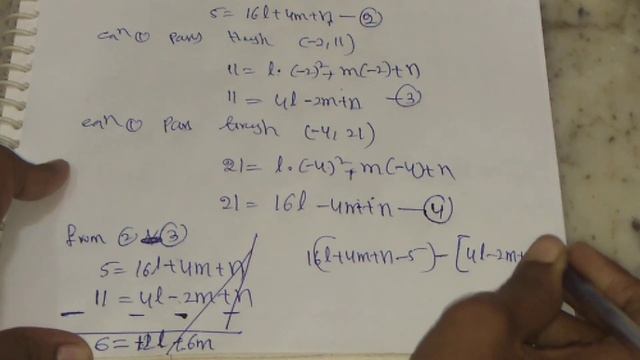 5 = 16l+4m+n — ②
eqn ① pass through (-2, 11)
11 = l·(-2)²+ m(-2)+n
11 = 4l -2m+n — ③
eqn ① pass through (-4, 21)
21 = l·(-4)²+ m(-4)+n
21 = 16l -4m+n — ④
from ② & ③
5 = 16l+4m+n
11 = 4l -2m+n
— — - +
6 = 12l+6m
16(l+4m+n-5) - [4l-2m+